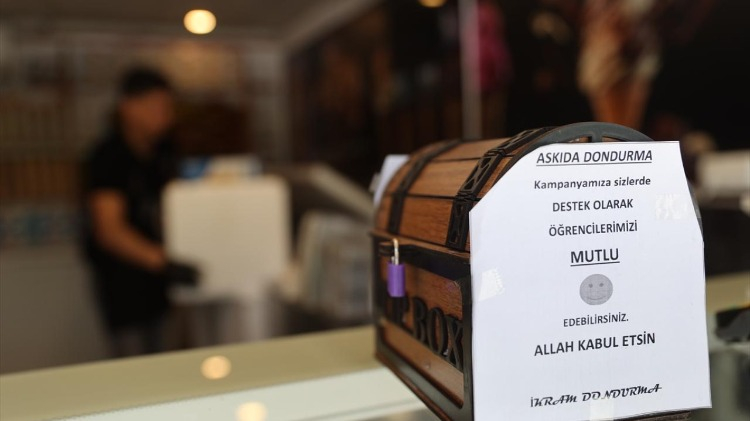 ASKIDA DONDURMA
Kampanyamıza sizlerde
DESTEK OLARAK
ÖĞRENCİLERİMİZİ
MUTLU
EDEBİLİRSİNİZ.
ALLAH KABUL ETSİN
İKRAM DONDURMA
BOX